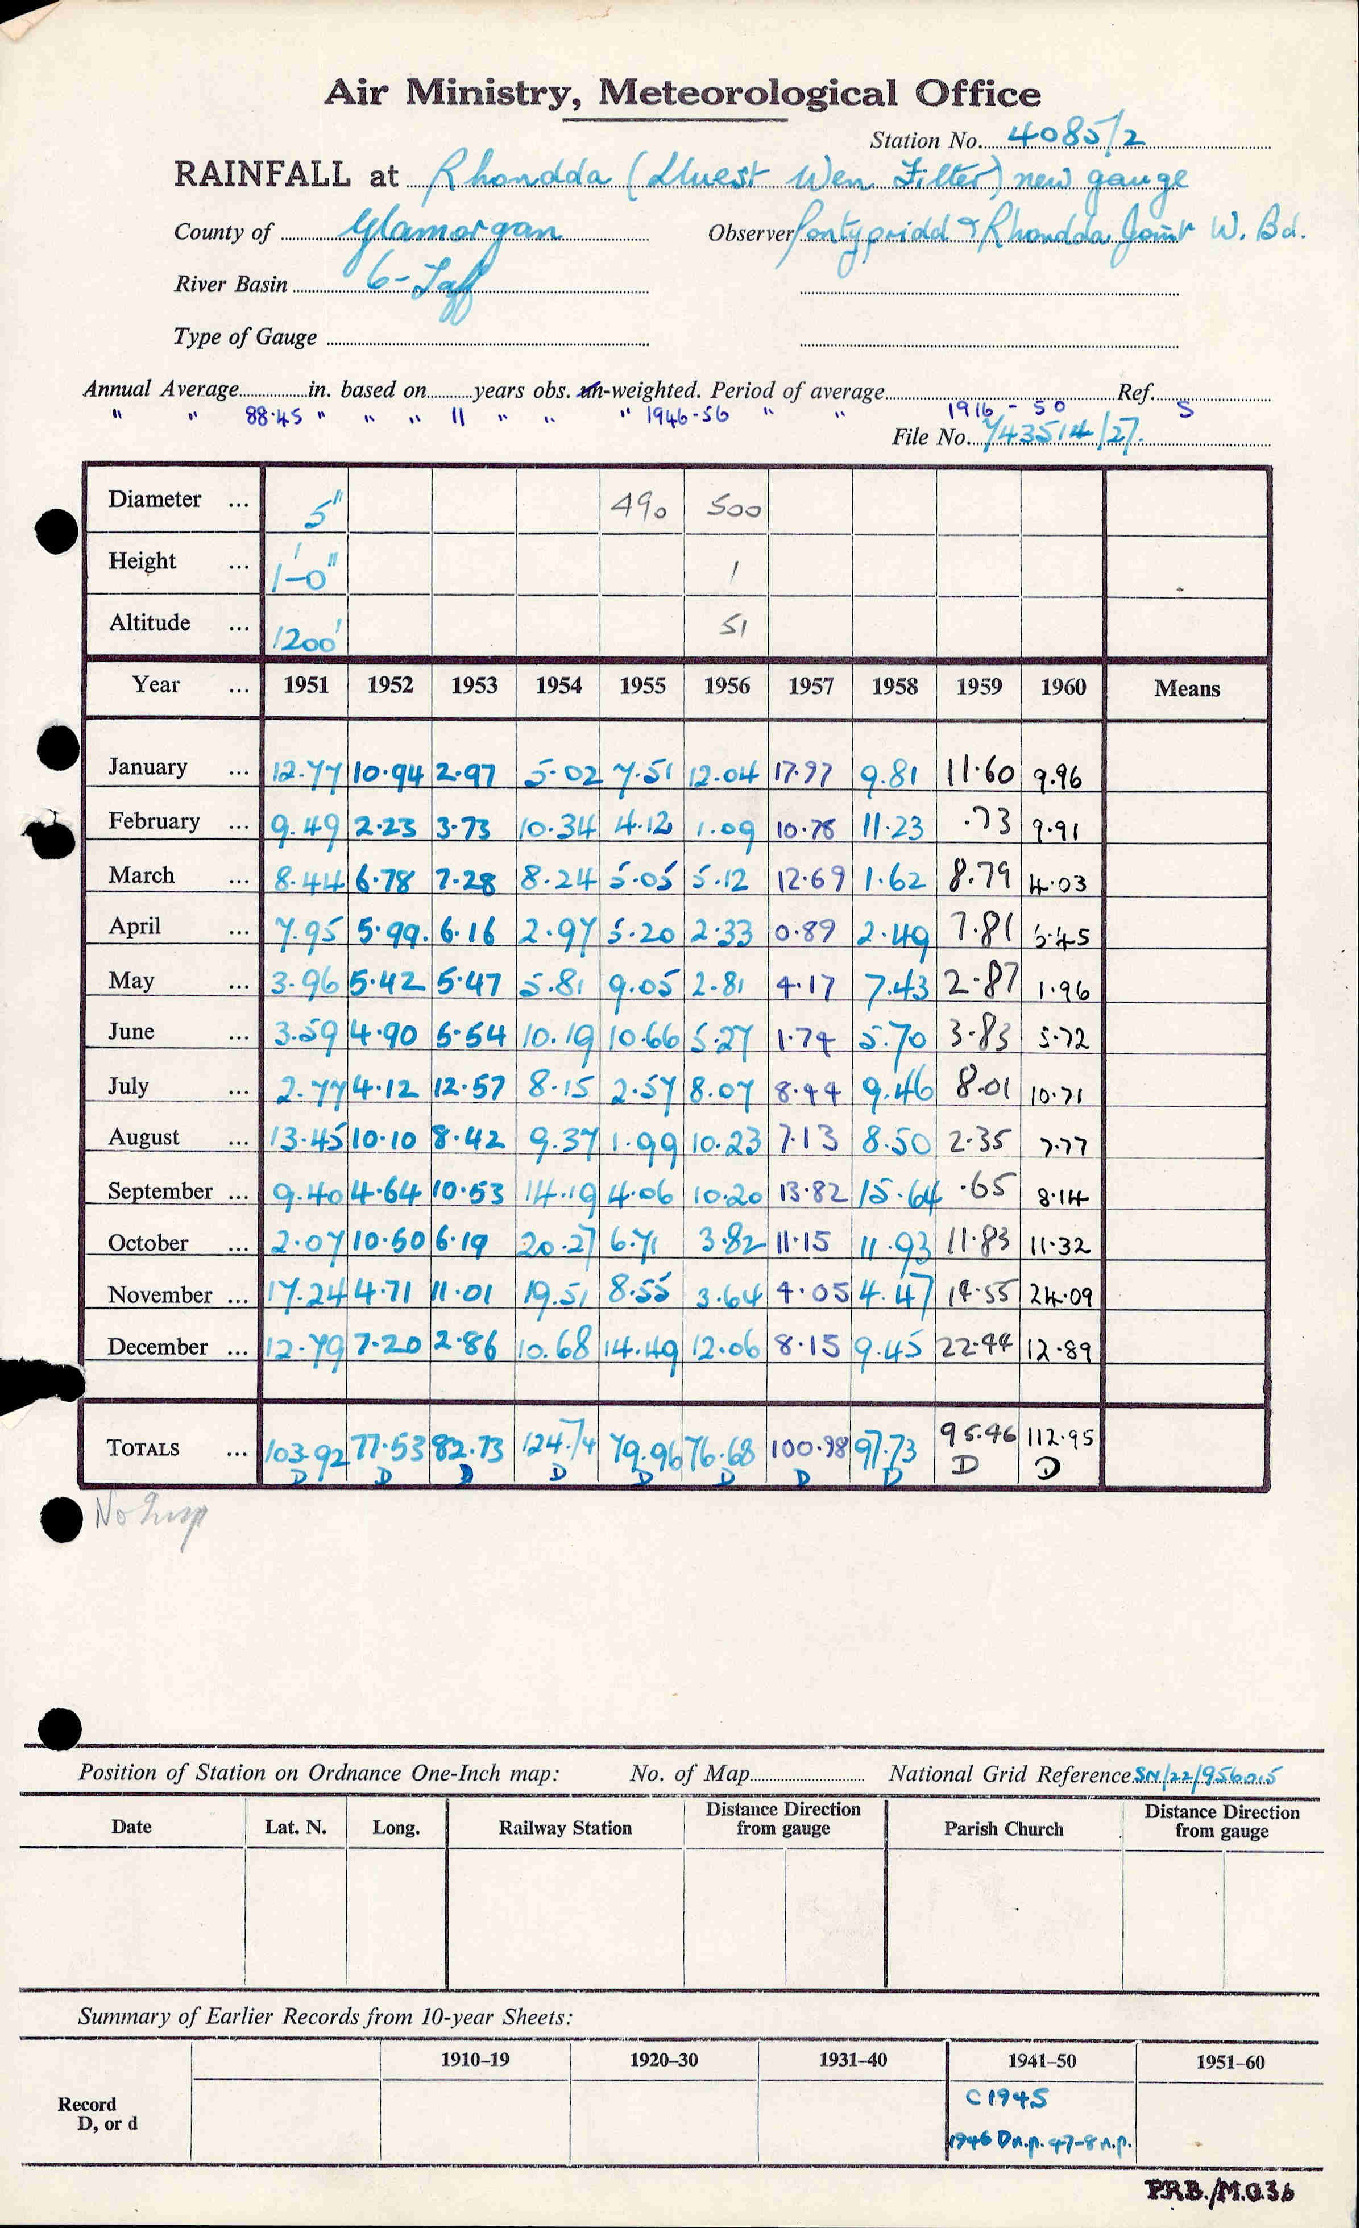 Air Ministry, Meteorological Office
Station No. 4085/2
RAINFALL at Rhondda (Lluest Wen Filter) new gauge
County of Glamorgan Observer Pontypridd & Rhondda Joint W. Bd.
River Basin 6-Taff
Type of Gauge
Annual Average in. based on years obs. un-weighted. Period of average 1916-50 Ref. S
" " 88.45 " " " 11 " " " 1946-56 " "
File No. 743514/27.
Diameter ... 5" 490 500
Height ... 1'-0" 1
Altitude ... 1200' 51
Year ... 1951 1952 1953 1954 1955 1956 1957 1958 1959 1960 Means
January ... 12.77 10.94 2.97 5.02 7.51 12.04 17.97 9.81 11.60 9.96
February ... 9.49 2.23 3.73 10.34 4.12 1.09 10.78 11.23 .73 9.91
March ... 8.44 6.78 7.28 8.24 5.05 5.12 12.69 1.62 8.79 4.03
April ... 7.95 5.99. 6.16 2.97 5.20 2.33 0.89 2.49 7.81 6.45
May ... 3.96 5.42 5.47 5.81 9.05 2.81 4.17 7.43 2.87 1.96
June ... 3.59 4.90 5.54 10.19 10.66 5.27 1.74 5.70 3.83 5.72
July ... 2.77 4.12 12.57 8.15 2.57 8.07 8.44 9.46 8.01 10.71
August ... 13.45 10.10 8.42 9.37 1.99 10.23 7.13 8.50 2.35 7.77
September ... 9.40 4.64 10.53 14.19 4.06 10.20 13.82 15.64 .65 8.14
October ... 2.07 10.50 6.19 20.27 6.71 3.82 11.15 11.93 11.83 11.32
November ... 17.24 4.71 11.01 19.51 8.55 3.64 4.05 4.47 14.55 24.09
December ... 12.79 7.20 2.86 10.68 14.49 12.06 8.15 9.45 22.44 12.89
TOTALS ... 103.92 77.53 82.73 124.74 79.96 76.68 100.98 97.73 95.46 112.95
D D D D D D D D D D
No Insp
Position of Station on Ordnance One-Inch map: No. of Map National Grid Reference SN/22/956015
Date Lat. N. Long. Railway Station Distance Direction from gauge Parish Church Distance Direction from gauge
Summary of Earlier Records from 10-year Sheets:
1910-19 1920-30 1931-40 1941-50 1951-60
Record C1945
D, or d 1946 D n.p. 47-8 n.p.
P.R.B./M.O.36